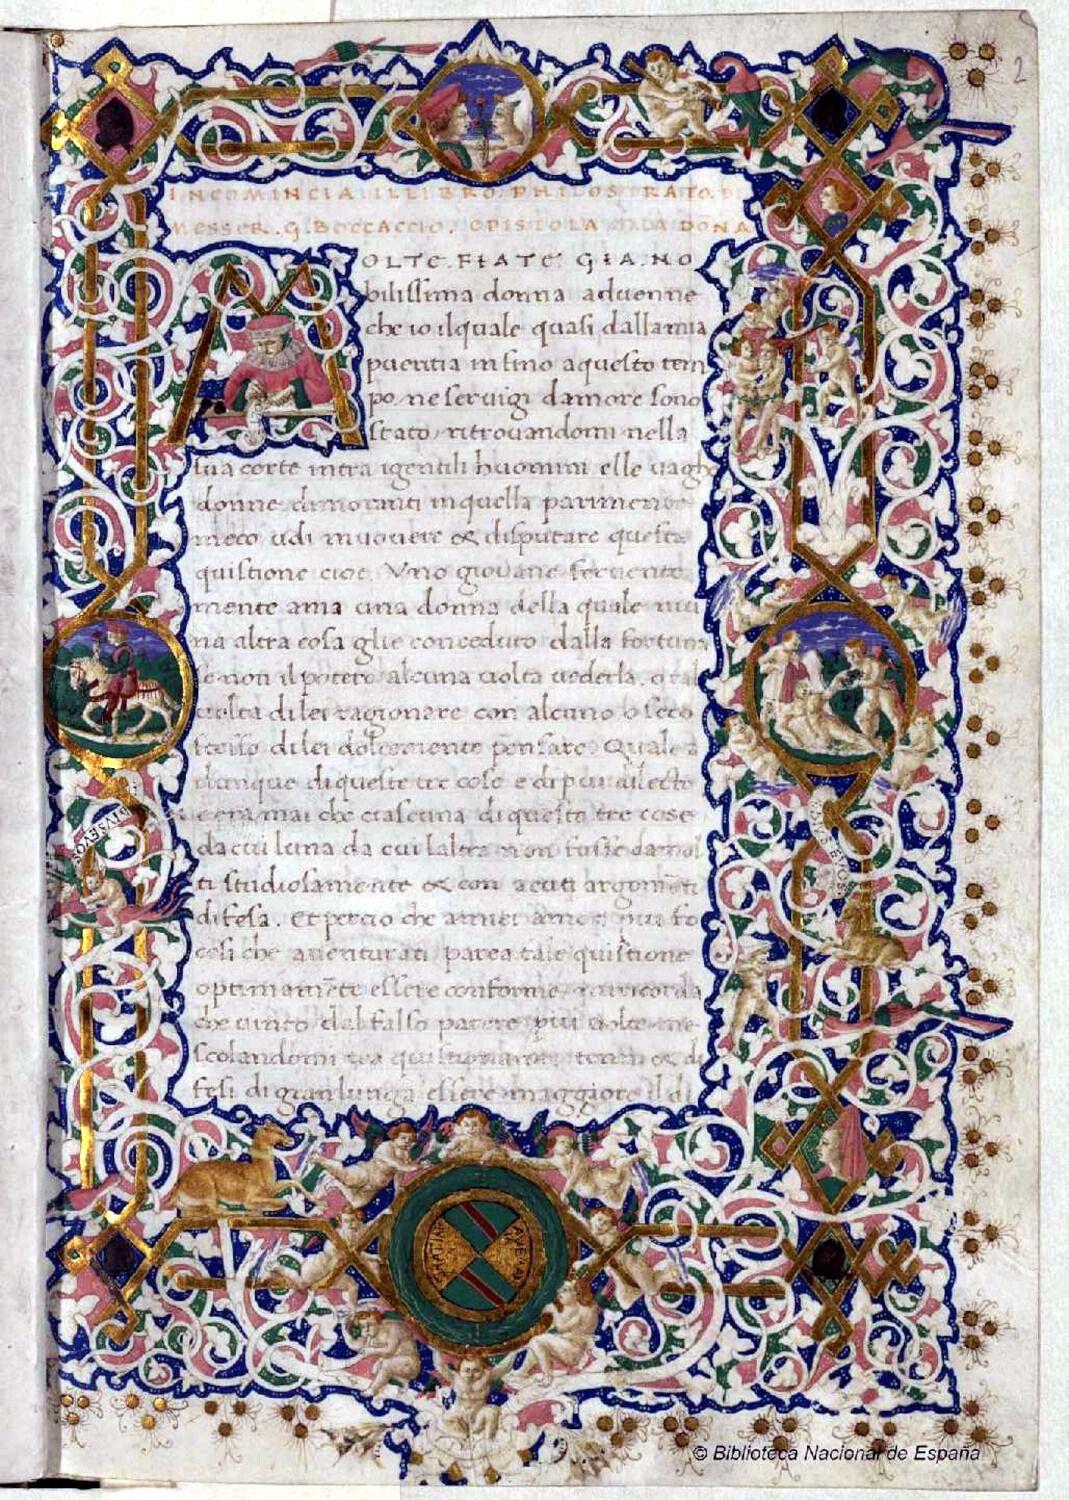 2
INCOMINCIA IL LIBRO PHILOSTRATO D
MESSER. G. BOCCACCIO. EPISTOLA ALLA DONA
MOLTE. FIATE. GIA. NO
bilissima donna aduenne
che io ilquale quasi dallamia
pueritia insino aquesto tem
po ne seruigi damore sono
stato ritrouandomi nella
sua corte intra igentili huomini elle uaghe
donne dimoranti inquella parimente
meco udi muouere & disputare questa
quistione cioe. Vno giouane feruente
mente ama una donna della quale niu
na altra cosa glie conceduto dalla fortuna
se non il potere alcuna uolta uederla. o tal
uolta dilei ragionare con alcuno o seco
stesso dilei dolcemente pensare. Quale a
dunque di queste tre cose e di piu dilecto
e era mai che ciascuna di queste tre cose
da cui luna da cui laltra non fusse da mol
ti studiosamente & con acuti argomēti
difesa. Et percio che amiei amori piu fo
cosi che auenturati parea tale quistione
optimamēte essere conforme, mi ricorda
che uinto dal falso parere piu uolte me
scolandomi tra quistionanti tenni & di
fesi di gran lunga essere maggiore il di
© Biblioteca Nacional de España